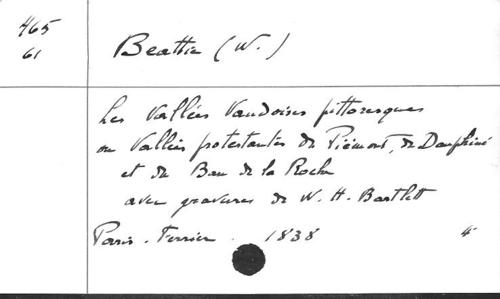 465
61
Beattie (W.)
Les Vallées Vaudoises pittoresques
ou Vallées protestantes du Piémont, du Dauphiné
et du Ban de la Roche
avec gravures de W. H. Bartlett
Paris. Ferrier. 1838 4°